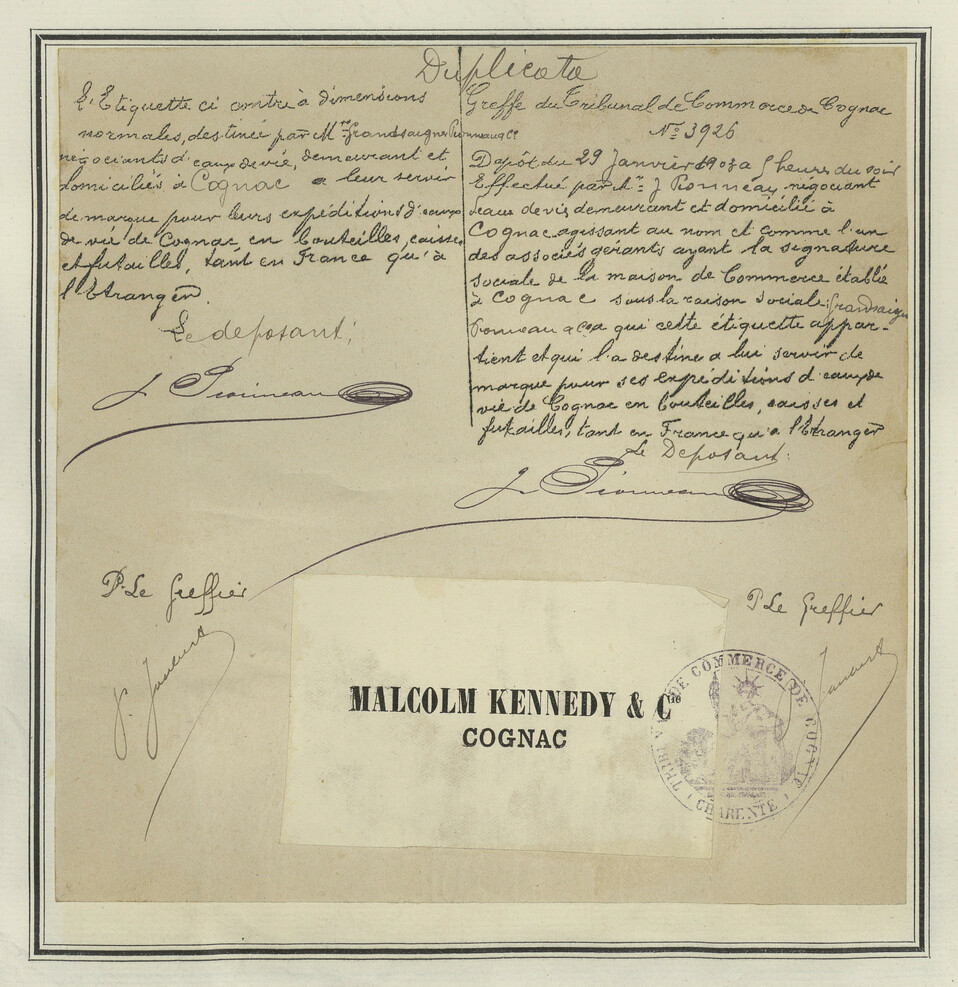 Duplicata
L'Etiquette ci contre à dimensions
normales, destinée par M.rs Grandsaigne Pionneau & Cie
négociants d'eaux de vie, demeurant et
domiciliés à Cognac a leur servir
de marque pour leurs expéditions d'eaux
de vie de Cognac, en bouteilles, caisses
et futailles, tant en France qu'à
l'Etranger.
Le deposant;
J Pionneau
Greffe du Tribunal de Commerce de Cognac
No. 3926
Depôt du 29 Janvier 1903 a 5 heures du soir
Effectué par Mr. J Pionneau, négociant
deaux de vie demeurant et domicilié à
Cognac agissant au nom et comme l'un
des associés gérants ayant la signature
sociale de la maison de Commerce établie
à Cognac sous la raison sociale: Grandsaigne
Pionneau & Cie a qui cette étiquette appar-
tient et qui l'a destine a lui servir de
marque pour ses expéditions d'eaux de
vie de Cognac en bouteilles, caisses et
futailles, tant en France qu'a l'Etranger
Le Deposant:
J Pionneau
P. Le Greffier
P Le Greffier
MALCOLM KENNEDY & Cie
COGNAC
TRIBUNAL DE COMMERCE DE COGNAC
CHARENTE